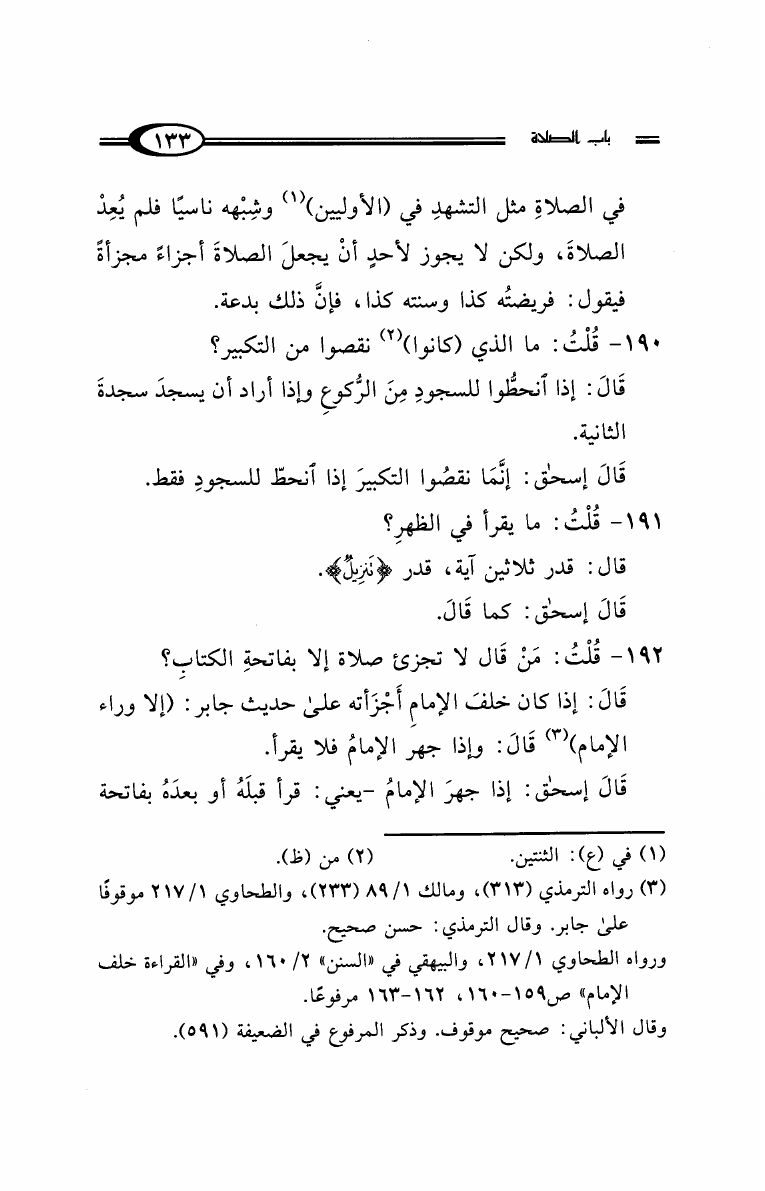 باب الصلاة ١٣٣
في الصلاةِ مثل التشهدِ في (الأوليين)(١) وشِبْهه ناسيًا فلم يُعِدْ
الصلاةَ، ولكن لا يجوز لأحدٍ أنْ يجعلَ الصلاةَ أجزاءً مجزأةً
فيقول: فريضتُه كذا وسنته كذا، فإنَّ ذلك بدعة.
١٩٠- قُلْتُ: ما الذي (كانوا)(٢) نقصوا من التكبير؟
قَالَ: إذا ٱنحطُّوا للسجودِ مِنَ الرُّكوعِ وإذا أراد أن يسجدَ سجدةَ
الثانية.
قَالَ إسحٰق: إنَّمَا نقصُوا التكبيرَ إذا ٱنحطّ للسجودِ فقط.
١٩١- قُلْتُ: ما يقرأ في الظهرِ؟
قال: قدر ثلاثين آية، قدر ﴿تَنزِيلٌ﴾.
قَالَ إسحٰق: كما قَالَ.
١٩٢- قُلْتُ: مَنْ قَال لا تجزئ صلاة إلا بفاتحةِ الكتابِ؟
قَالَ: إذا كان خلفَ الإمامِ أَجْزَأته علىٰ حديث جابر: (إلا وراء
الإمام)(٣) قَالَ: وإذا جهر الإمامُ فلا يقرأ.
قَالَ إسحٰق: إذا جهرَ الإمامُ -يعني: قرأ قبلَهُ أو بعدَهُ بفاتحة
(١) في (ع): الثنتين. (٢) من (ظ).
(٣) رواه الترمذي (٣١٣)، ومالك ١/ ٨٩ (٢٣٣)، والطحاوي ١/ ٢١٧ موقوفًا
علىٰ جابر. وقال الترمذي: حسن صحيح.
ورواه الطحاوي ١/ ٢١٧، والبيهقي في «السنن» ٢/ ١٦٠، وفي «القراءة خلف
الإمام» ص١٥٩-١٦٠، ١٦٢-١٦٣ مرفوعًا.
وقال الألباني: صحيح موقوف. وذكر المرفوع في الضعيفة (٥٩١).